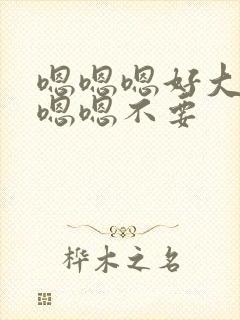 嗯嗯嗯好大
嗯嗯不要
桦木之名